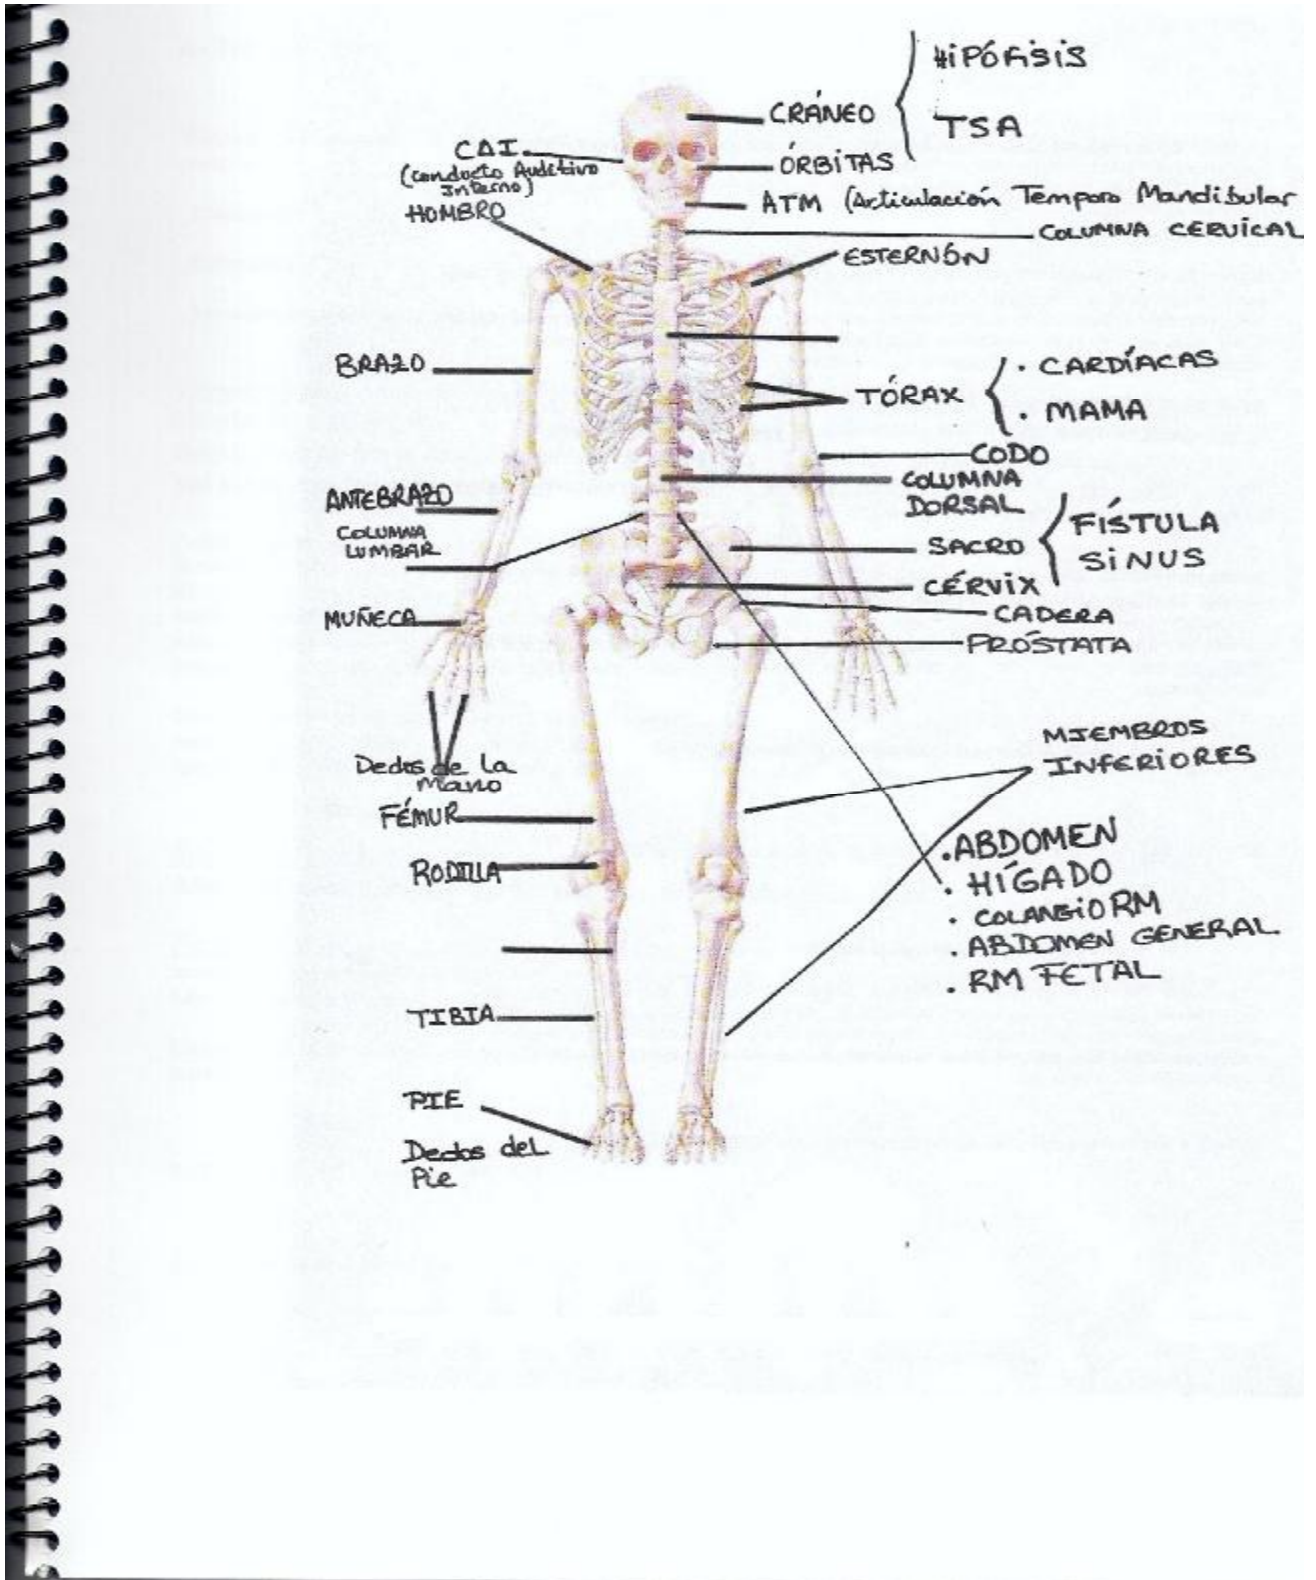 HiPÓFiSiS
CRÁNEO
TSA
CAI.
(Conducto Auditivo
Interno)
ÓRBITAS
ATM (Articulación Temporo Mandibular
HOMBRO
COLUMNA CERVICAL
ESTERNÓN
BRAZO
TÓRAX
. CARDÍACAS
. MAMA
CODO
COLUMNA
DORSAL
ANTEBRAZO
COLUMNA
LUMBAR
SACRO
FÍSTULA
SiNUS
CÉRViX
CADERA
MUÑECA
PRÓSTATA
MIEMBROS
INFERIORES
Dedos de la
Mano
FÉMUR
RODILLA
. ABDOMEN
. HÍGADO
. COLANGiO RM
. ABDOMEN GENERAL
. RM FETAL
TIBIA
PIE
Dedos del
Pie